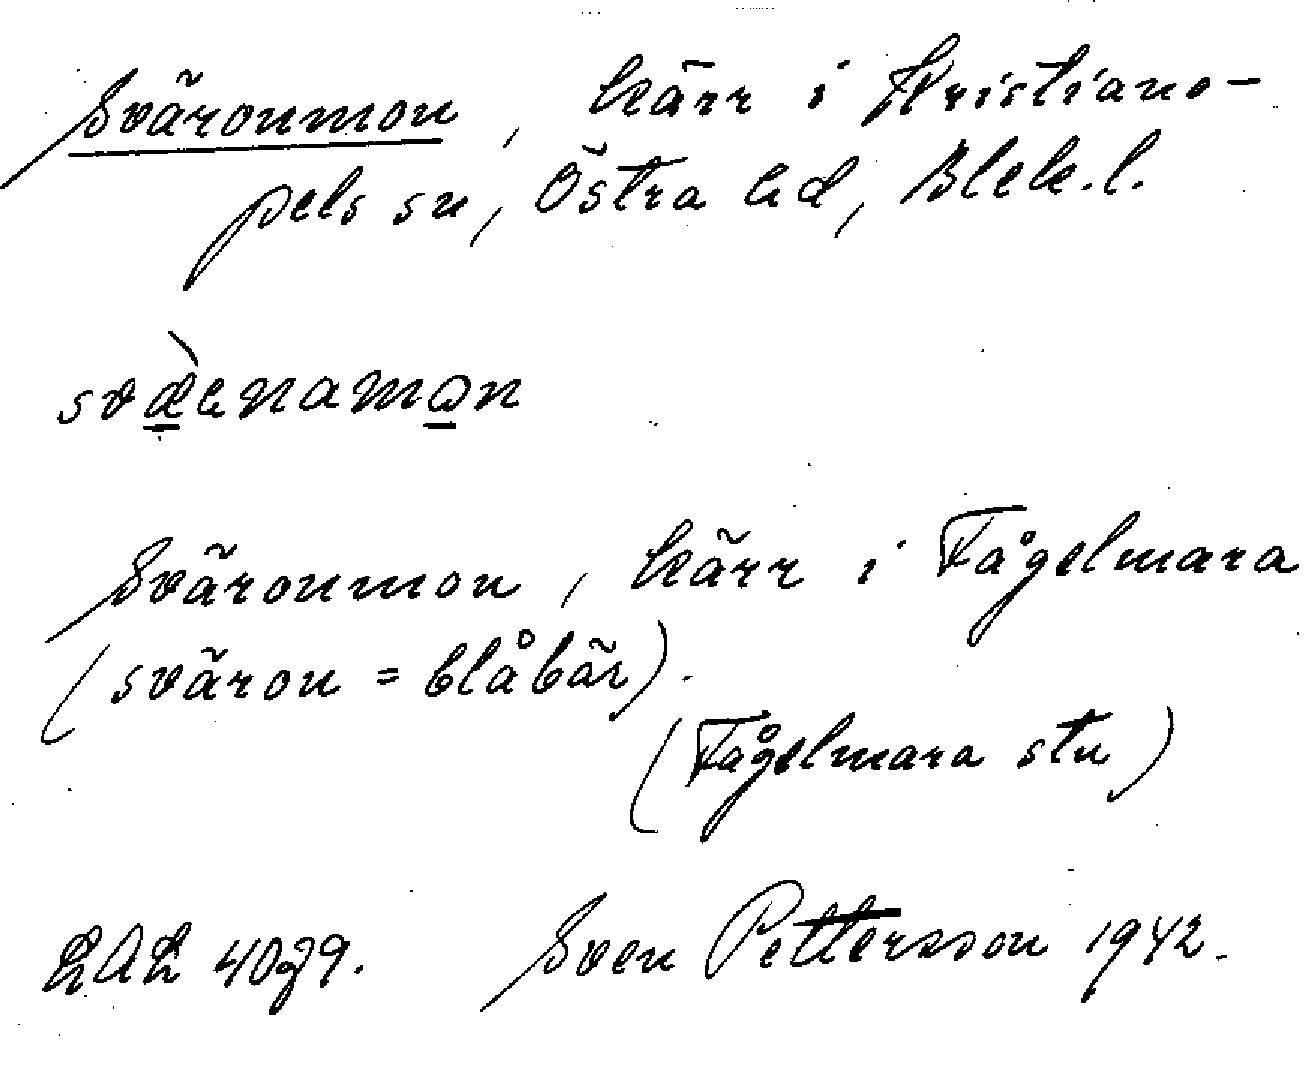 Sväronmon, kärr i Kristiano-
pels sn, Östra hd, Blek.l.
Sväronmon, kärr i Fågelmara
(sväron = blåbär).
(Fågelmara stn)
LAL 4079. Sven Pettersson 1942.